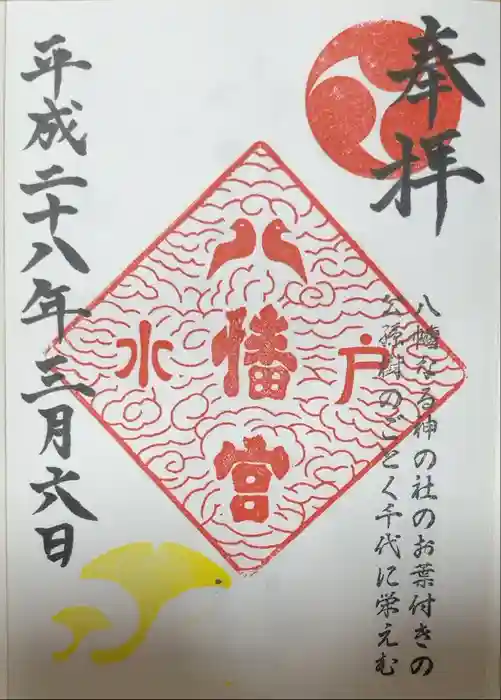 奉拝
八幡なる神の社のお葉付きの
公孫樹のごとく千代に栄えむ
八幡宮
水戸
平成二十八年三月六日